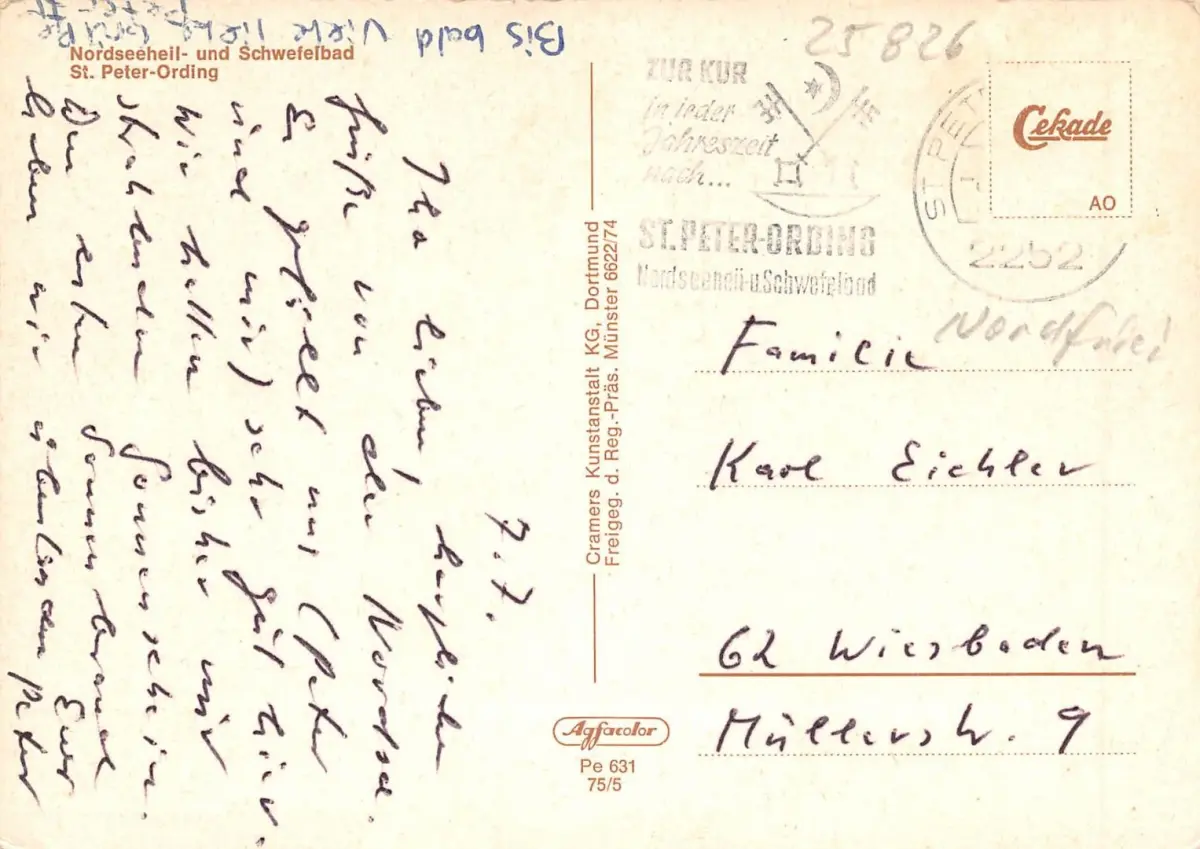 Bis bald Viele liebe Grüße
Nordseeheil- und Schwefelbad
St. Peter-Ording
7.7.
Ihr lieben, herzliche
Grüße von der Nordsee.
Es gefällt uns (Peter
und mir) sehr gut hier.
Wir hatten bisher nur
strahlenden Sonnenschein.
Den ersten Sonnenbrand
haben wir überstanden
Euer
Peter
Cramers Kunstanstalt KG, Dortmund
Freigeg. d. Reg.-Präs. Münster 6622/74
Agfacolor
Pe 631
75/5
25826
ZUR KUR
in jeder
Jahreszeit
nach...
ST. PETER-ORDING
Nordseeheil-u.Schwefelbad
ST. PET
2252
Cekade
AO
Nordfriei
Familie
Karl Eichler
62 Wiesbaden
Müllerstr. 9